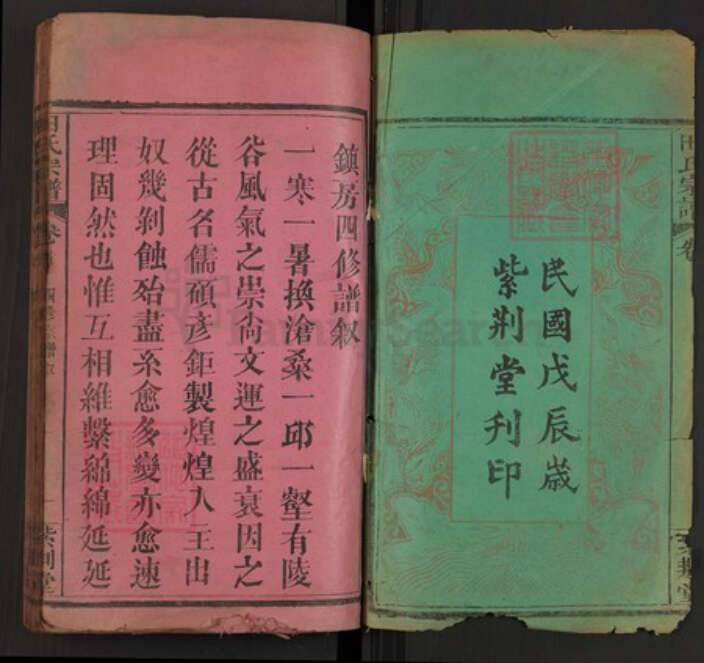 民國戊辰歲
紫荆堂刊印
鎮房四修譜叙
一寒一暑換滄桑一邱一壑有陵
谷風氣之崇尚文運之盛衰因之
從古名儒碩彦鉅製煌煌入王出
奴幾剥蝕殆盡系愈多變亦愈速
理固然也惟互相維繫綿綿延延
田氏宗譜
卷
紫荆堂
氏宗譜
卷
紫荆堂
FamilySearch